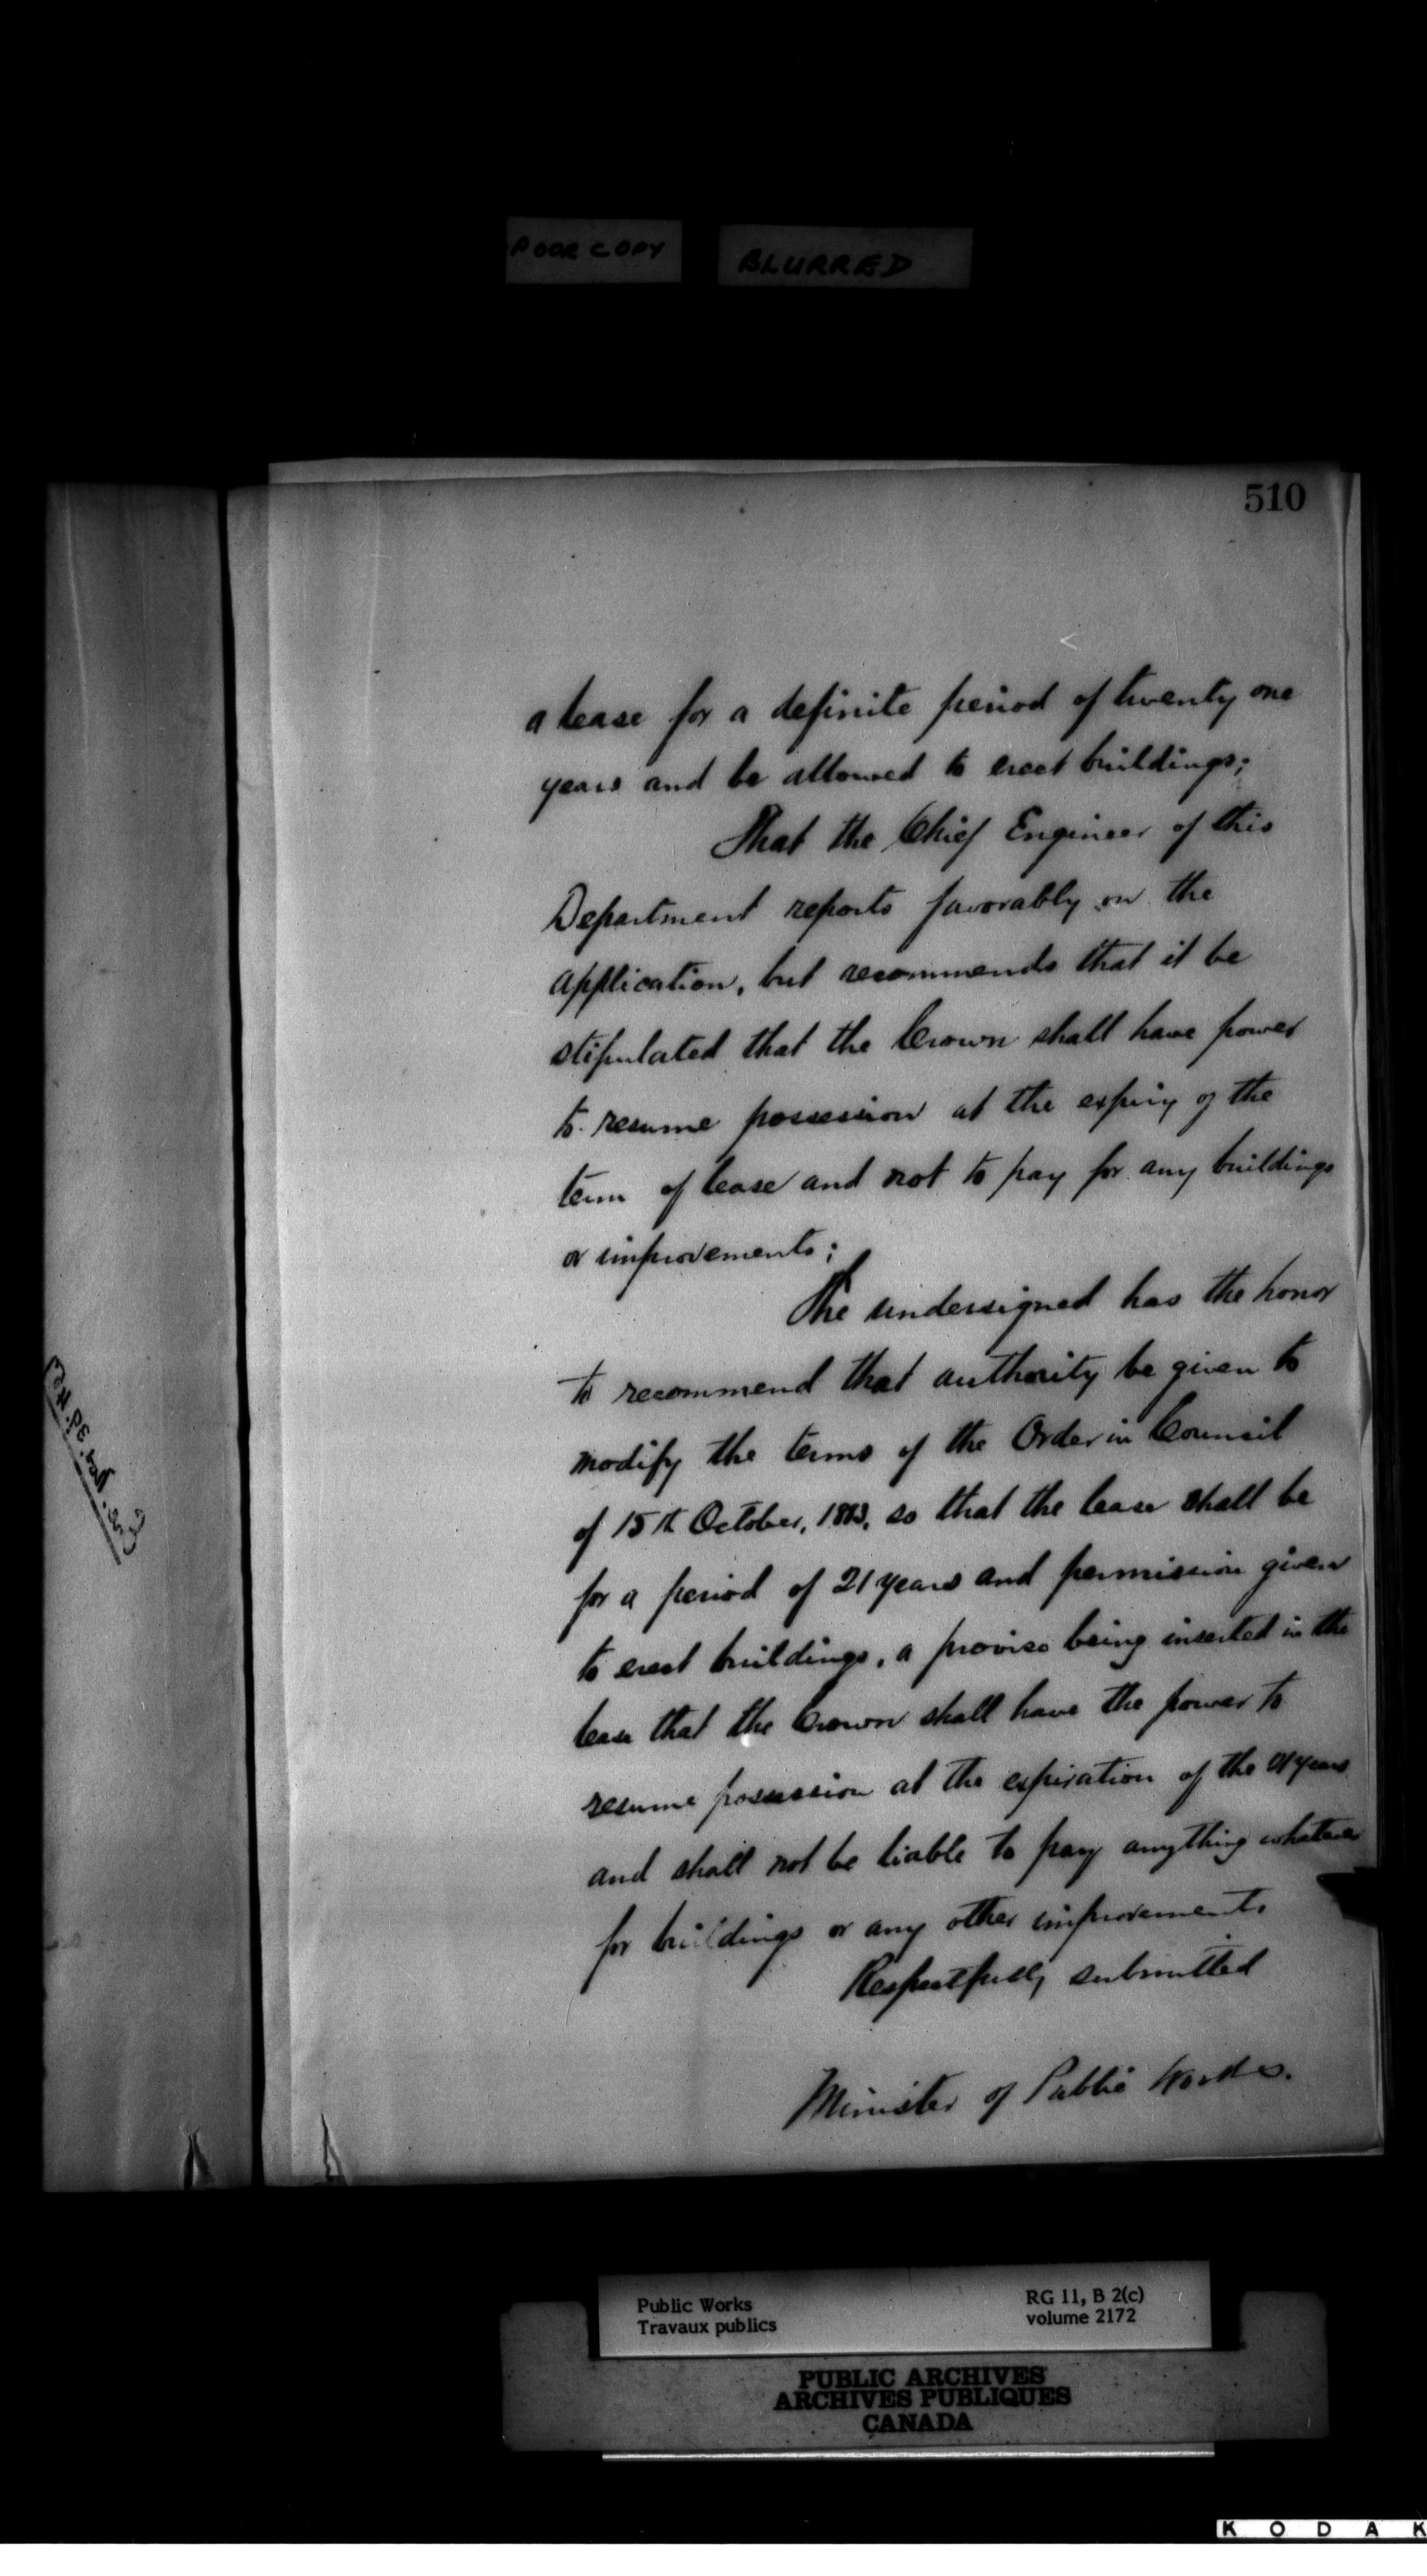 POOR COPY
BLURRED
510
a lease for a definite period of twenty one
years and be allowed to erect buildings;
That the Chief Engineer of this
Department reports favorably on the
application, but recommends that it be
stipulated that the Crown shall have power
to resume possession at the expiry of the
term of lease and not to pay for any buildings
or improvements;
The undersigned has the honor
to recommend that authority be given to
modify the terms of the Order in Council
of 15th October, so that the lease shall be
for a period of 21 years and permission given
to erect buildings, a proviso being inserted in the
lease that the Crown shall have the power to
resume possession at the expiration of the 21 years
and shall not be liable to pay anything whatever
for buildings or any other improvements
Respectfully submitted
Minister of Public Works.
Public Works
Travaux publics
RG 11, B 2(c)
volume 2172
PUBLIC ARCHIVES
ARCHIVES PUBLIQUES
CANADA
KODAK